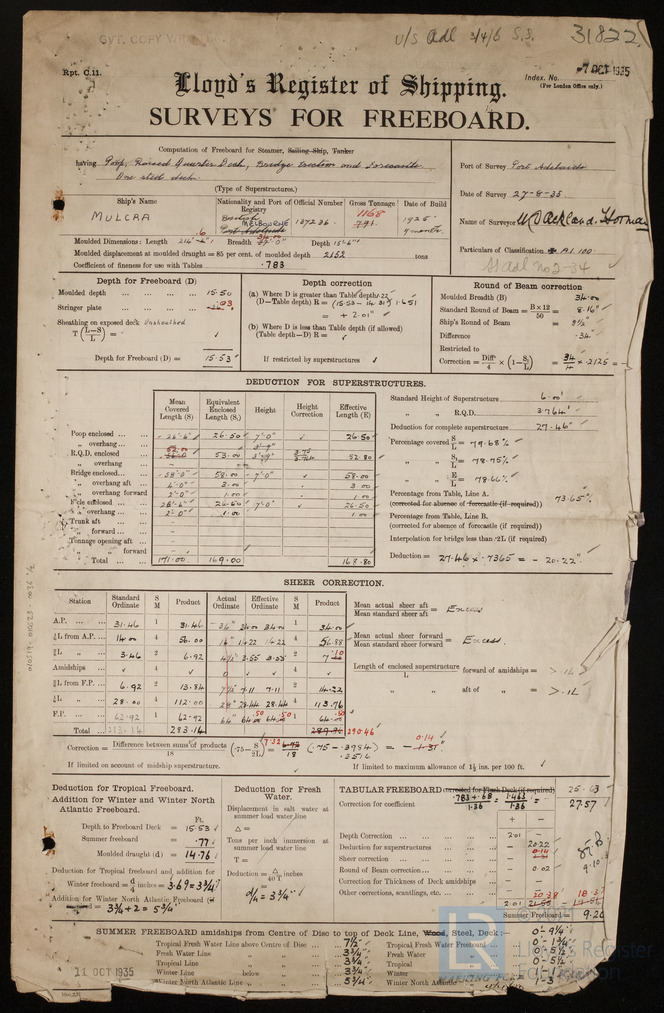 U/S Adl 3/4/6 S.S. 31822
Rpt. C.11.
Index No.
7 OCT 1935
(For London Office only.)
Lloyd's Register of Shipping.
SURVEYS FOR FREEBOARD.
Computation of Freeboard for Steamer, Sailing Ship, Tanker
having Poop, Raised Quarter Deck, Bridge Erection and Forecastle
One steel deck
(Type of Superstructures.)
Port of Survey Port Adelaide
Date of Survey 27-8-35
Name of Surveyor
Particulars of Classification A1 100
Ship's Name
Nationality and Port of Registry
Official Number
Gross Tonnage
Date of Build
MULCRA
British
MELBOURNE
Port Adelaide
157236
1168
791
1925
Moulded Dimensions: Length Breadth Depth 15'-6"
Moulded displacement at moulded draught = 85 per cent. of moulded depth 2152 tons
Coefficient of fineness for use with Tables .783
Depth for Freeboard (D)
Moulded depth ... 15.50
Stringer plate ... .03
Sheathing on exposed deck Unsheathed
T (L-S/L) =
Depth for Freeboard (D) = 15.53
Depth correction
(a) Where D is greater than Table depth
(D—Table depth) R =
= + 2.01"
(b) Where D is less than Table depth (if allowed)
(Table depth—D) R =
If restricted by superstructures
Round of Beam correction
Moulded Breadth (B) 34.00
Standard Round of Beam = B × 12/50 = 8.16"
Ship's Round of Beam = 8½"
Difference .34
Restricted to
Correction = Diff/4 × (1-S/L) = .34/4 × .2125 =
DEDUCTION FOR SUPERSTRUCTURES.
Mean Covered Length (S)
Equivalent Enclosed Length (S₁)
Height
Height Correction
Effective Length (E)
Poop enclosed ... 26'-6" 26.50 7'-0" 26.50
„ overhang ...
R.Q.D. enclosed ... 53.00 3.75/3.764 52.80
„ overhang
Bridge enclosed... 58'-0" 58.00 7'-0" 58.00
„ overhang aft 4'-0" 3.00 3.00
„ overhang forward 2'-0" 1.00 1.00
F'cle enclosed ... 28'-6" 26.50 7'-0" 26.50
„ overhang ... 2'-0" 1.00 1.00
Trunk aft ...
„ forward ...
Tonnage opening aft ...
„ „ forward
Total ... 171.00 169.00 168.80
Standard Height of Superstructure 6.00'
„ „ R.Q.D. 3.764'
Deduction for complete superstructure 27.46"
Percentage covered S/L = 79.68%
„ „ S₁/L = 78.75%
„ „ E/L = 78.66%
Percentage from Table, Line A.
(corrected for absence of forecastle (if required))
73.65%
Percentage from Table, Line B.
(corrected for absence of forecastle (if required))
Interpolation for bridge less than ·2L (if required)
Deduction = 27.46 × .7365 = - 20.22"
SHEER CORRECTION.
Station
Standard Ordinate
S M
Product
Actual Ordinate
Effective Ordinate
S M
Product
A.P. ... 31.46 1 31.46 34" 34.00 34.00 1 34.00
⅙L from A.P. ... 14.00 4 56.00 14.22 14.22 4 56.88
⅓L „ 3.46 2 6.92 3.55 3.55 2 7.10
Amidships ... 0 4
⅓L from F.P. ... 6.92 2 13.84 7.11 7.11 2 14.22
⅙L „ 28.00 4 112.00 28" 28.44 28.44 4 113.76
F.P. ... 62.92 1 62.92 64" 64.50 64.50 1 64.50
Total ... 283.14 289.36 290.46
Mean actual sheer aft / Mean standard sheer aft = Excess
Mean actual sheer forward / Mean standard sheer forward = Excess.
Length of enclosed superstructure / L forward of amidships = > .1L
„ „ aft of „ = > .1L
Correction = Difference between sums of products / 18 (·75 - S/2L) = 7.32/18 (.75 - .3984) = - 0.14
.3516
If limited on account of midship superstructure.
If limited to maximum allowance of 1½ ins. per 100 ft.
Deduction for Tropical Freeboard.
Addition for Winter and Winter North Atlantic Freeboard.
Ft.
Depth to Freeboard Deck = 15.53
Summer freeboard = .77
Moulded draught (d) = 14.76
Deduction for Tropical freeboard and addition for
Winter freeboard = d/4 inches = 3.69 = 3¾"
Addition for Winter North Atlantic Freeboard
= 3¾ + 2 = 5¾"
Deduction for Fresh Water.
Displacement in salt water at summer load water line
Δ =
Tons per inch immersion at summer load water line
T =
Deduction = Δ/40T inches
d/4 = 3¾"
TABULAR FREEBOARD corrected for Flush Deck (if required) 25.63
Correction for coefficient .783+.68/1.36 = 1.463/1.36 = 27.57
+ -
Depth Correction ... 2.01
Deduction for superstructures ... 20.22
Sheer correction ... 0.14
Round of Beam correction ... 0.02
Correction for Thickness of Deck amidships
Other corrections, scantlings, etc. ...
2.01 20.38 18.37
Summer Freeboard = 9.20
SUMMER FREEBOARD amidships from Centre of Disc to top of Deck Line, Wood, Steel, Deck :— 0'- 9¼"
Tropical Fresh Water Line above Centre of Disc ... 7½"
Fresh Water Line „ „ ... 3¾"
Tropical Line „ „ ... 3¾"
Winter Line below „ ... 3¾"
Winter North Atlantic Line „ „ ... 5¾"
Tropical Fresh Water Freeboard 0'- 1¾"
Fresh Water „ 0'- 5½"
Tropical „ 0'- 5½"
Winter „
Winter North Atlantic „
11 OCT 1935
LR
© 2021
Lloyd's Register
Foundation